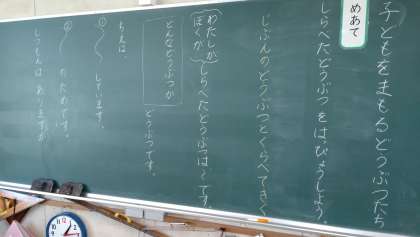 子どもをまもるどうぶつたち
めあて
しらべたどうぶつをはっぴょうしよう。
じぶんのどうぶつとくらべてきく
わたしが
ぼくが
しらべたどうぶつは〜です。
どんなどうぶつか
どうぶつです。
ちえは
①〜しています。
②〜のためです。
しつもんはありますか